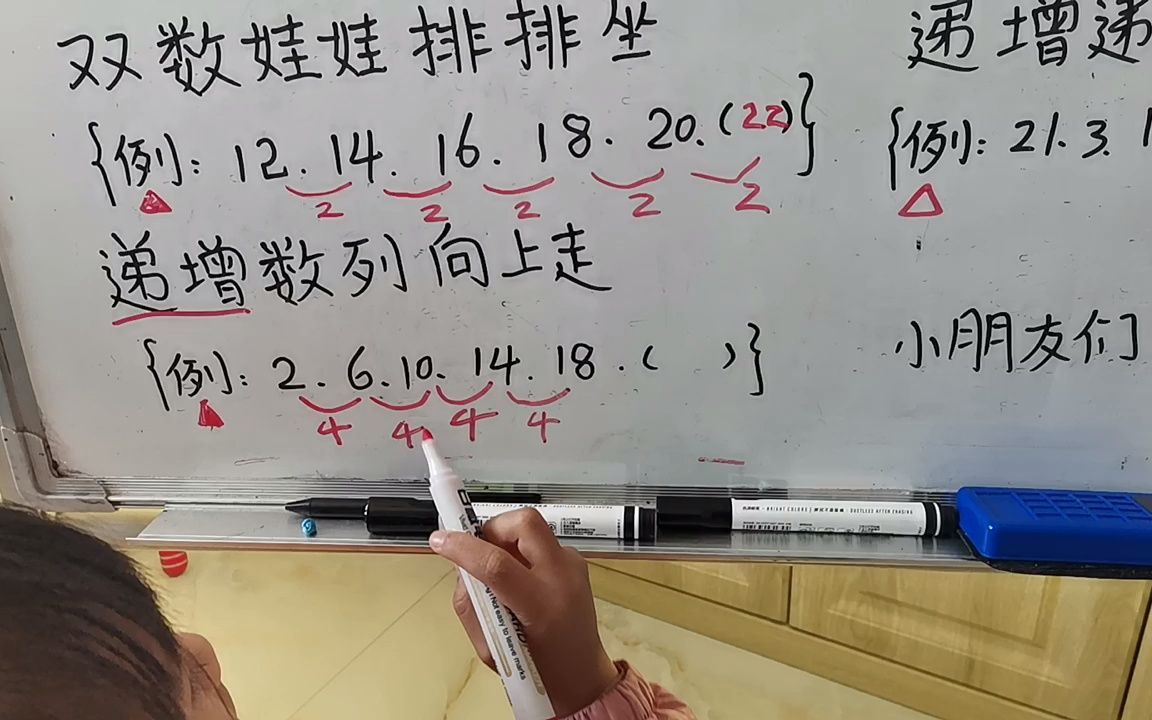 双数娃娃排排坐
{例: 12. 14. 16. 18. 20. (22)}
2 2 2 2 2
递增数列向上走
{例: 2. 6. 10. 14. 18. ( )}
4 4 4 4
递增递
{例: 21. 3. 1
小朋友们
Not easy to leave marks